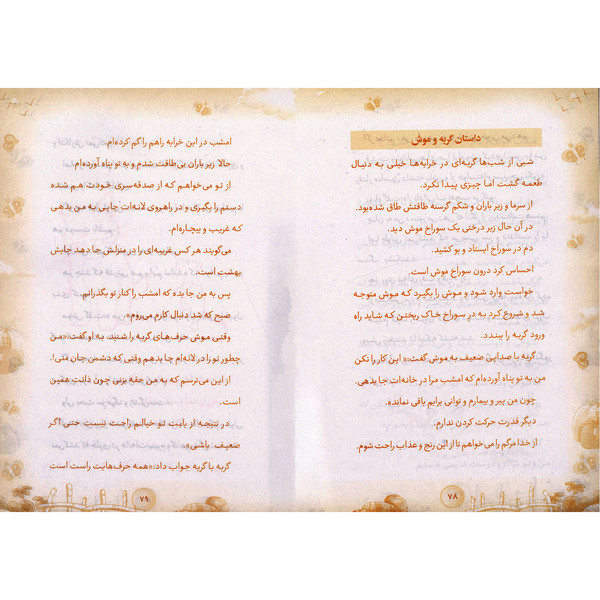 داستان گربه و موش
شبی از شب‌ها گربه‌ای در خرابه‌ها خیلی به دنبال
طعمه گشت اما چیزی پیدا نکرد.
از سرما و زیر باران و شکم گرسنه طاقتش طاق شده‌بود.
در آن حال زیر درختی یک سوراخ موش دید.
دم در سوراخ ایستاد و بو کشید.
احساس کرد درون سوراخ موش است.
خواست وارد شود و موش را بگیرد که موش متوجه
شد و شروع کرد به در سوراخ خاک ریختن که شاید راه
ورود گربه را ببندد.
گربه با صدایی ضعیف به موش گفت:« این کار را نکن
من به تو پناه آورده‌ام که امشب مرا در خانه‌ات جا بدهی.
چون من پیر و بیمارم و توانی برایم باقی نمانده.
دیگر قدرت حرکت کردن ندارم.
از خدا مرگم را می‌خواهم تا از این رنج و عذاب راحت شوم.
۷۸
امشب در این خرابه راهم را گم کرده‌ام.
حالا زیر باران بی‌طاقت شدم و به تو پناه آورده‌ام
از تو می‌خواهم که از صدقه‌سری خودت هم شده
دستم را بگیری و در راهروی لانه‌ات جایی به من بدهی
که غریب و بیچاره‌ام.
می‌گویند هر کس غریبه‌ای را در منزلش جا دهد جایش
بهشت است.
پس به من جا بده که امشب را کنار تو بگذرانم.
صبح که شد دنبال کارم می‌روم».
وقتی موش حرف‌های گربه را شنید، به او گفت:« من
چطور تو را در لانه‌ام جا بدهم وقتی که دشمن جان منی!.
از این می‌ترسم که به من حقه بزنی چون ذاتت همین
است.
در نتیجه از بابت تو خیالم راحت نیست حتی اگر
ضعیف باشی».
گربه با گریه جواب داد:«همه حرف‌هایت راست است
۷۹